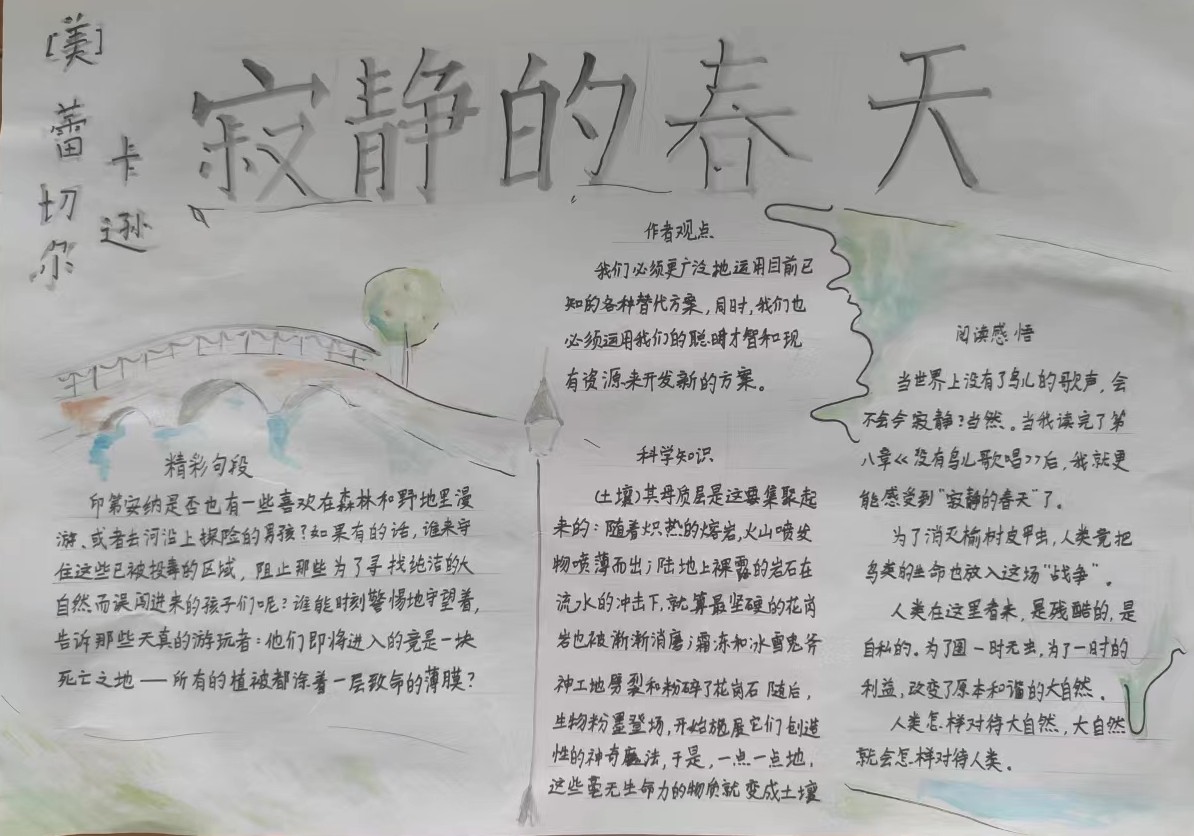 [美]
蕾切尔
卡逊
寂静的春天
精彩句段
印第安纳是否也有一些喜欢在森林和野地里漫
游、或者去河沿上探险的男孩?如果有的话,谁来守
住这些已被投毒的区域,阻止那些为了寻找纯洁的大
自然而误闯进来的孩子们呢?谁能时刻警惕地守望着,
告诉那些天真的游玩者:他们即将进入的竟是一块
死亡之地——所有的植被都涂着一层致命的薄膜?
作者观点
我们必须更广泛地运用目前已
知的各种替代方案,同时,我们也
必须运用我们的聪明才智和现
有资源来开发新的方案。
科学知识
(土壤)其母质层是这要集聚起
来的:随着炽热的熔岩,火山喷发
物喷薄而出;陆地上裸露的岩石在
流水的冲击下,就算最坚硬的花岗
岩也被渐渐消磨;霜冻和冰雪鬼斧
神工地劈裂和粉碎了花岗石 随后,
生物粉墨登场,开始施展它们创造
性的神奇魔法,于是,一点一点地,
这些毫无生命力的物质就变成土壤
阅读感悟
当世界上没有了鸟儿的歌声,会
不会令寂静?当然。当我读完了第
八章《没有鸟儿歌唱》后,我就更
能感受到“寂静的春天”了。
为了消灭榆树皮甲虫,人类竟把
鸟类的生命也放入这场“战争”。
人类在这里看来,是残酷的,是
自私的。为了图一时无虫,为了一时的
利益,改变了原本和谐的大自然。
人类怎样对待大自然,大自然
就会怎样对待人类。